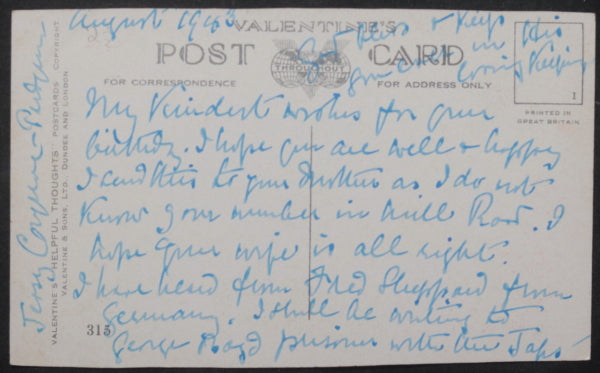 August 1943
God bless & Keep
you ever in His
loving Keeping
VALENTINE'S
POST CARD
THROUGHOUT
FOR CORRESPONDENCE
FOR ADDRESS ONLY
1
PRINTED IN
GREAT BRITAIN
My Kindest wishes for your
birthday. I hope you are well & happy
I send this to your Mother as I do not
Know your number in Mill Road. I
hope your wife is all right.
I have heard from Fred Sheppard from
Germany. I shall be writing to
George Boyd prisoner with the Japs
315
VALENTINE'S "HELPFUL THOUGHTS" POSTCARDS COPYRIGHT
VALENTINE & SONS, LTD., DUNDEE AND LONDON
Jessy